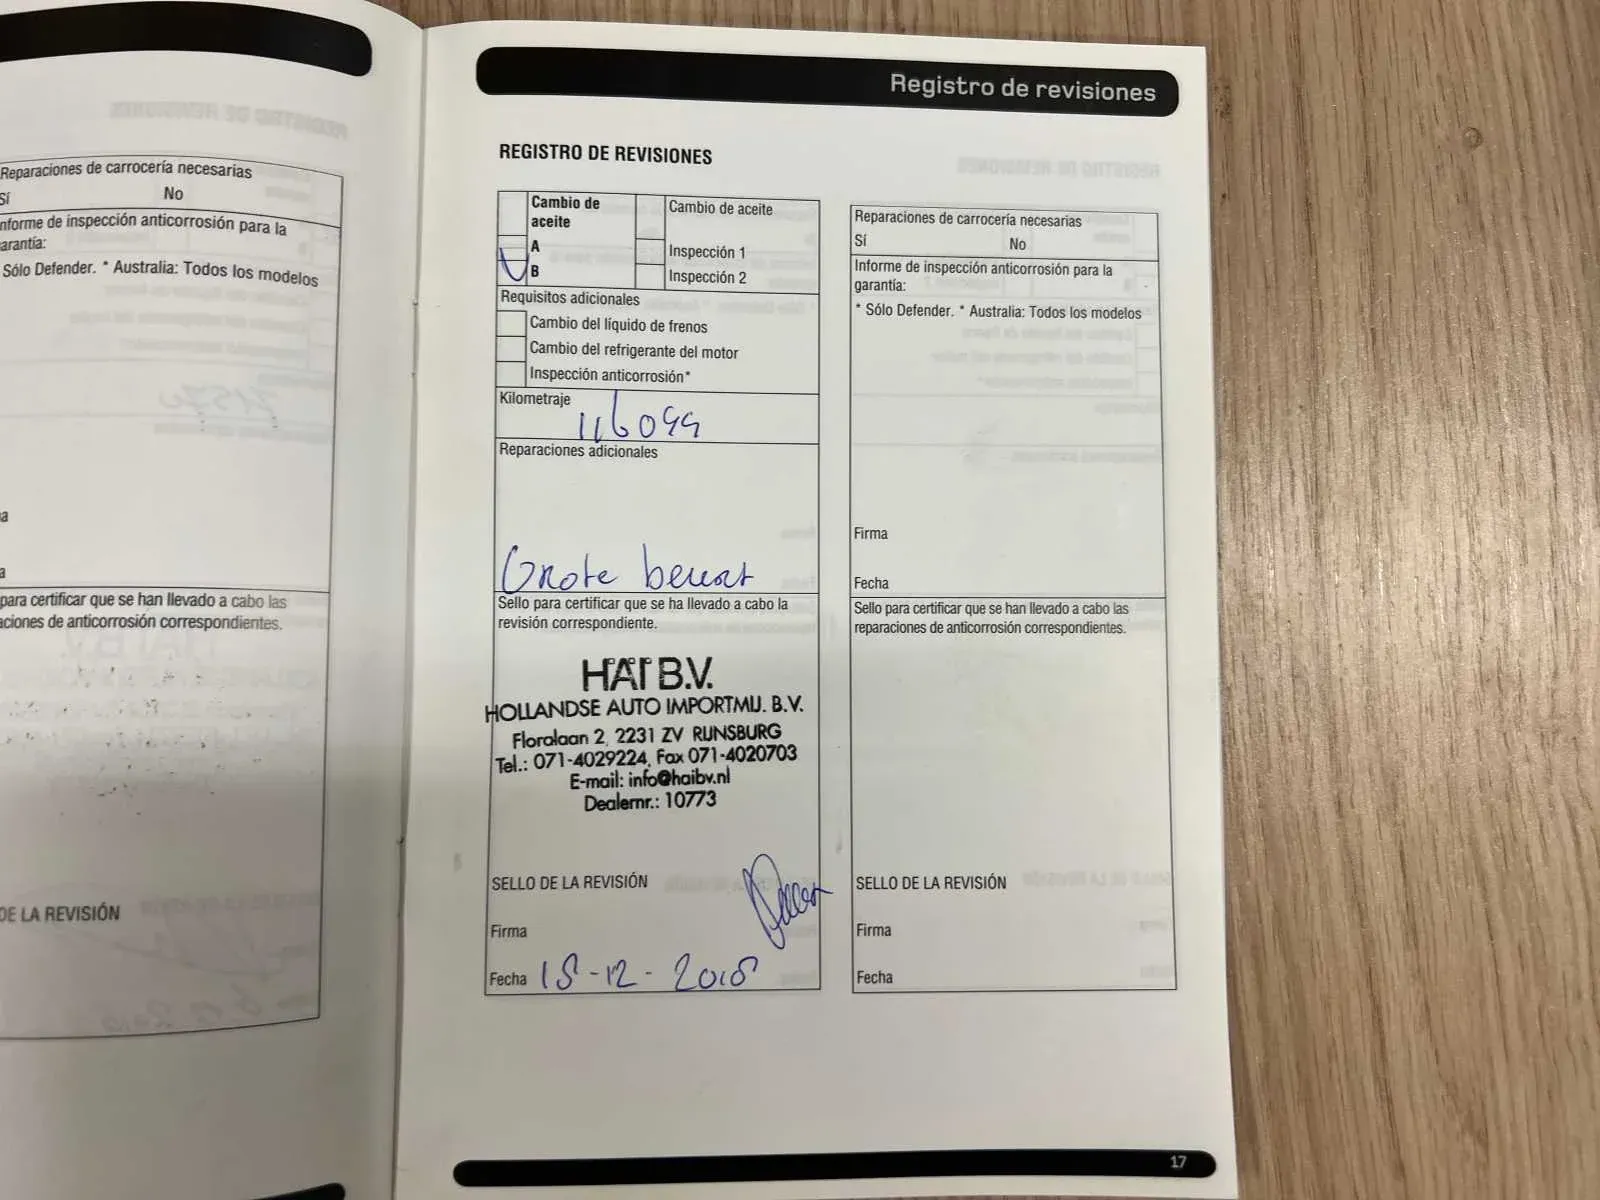 Reparaciones de carrocería necesarias
Sí No
nforme de inspección anticorrosión para la
arantía:
Sólo Defender. * Australia: Todos los modelos
a
a
para certificar que se han llevado a cabo las
aciones de anticorrosión correspondientes.
DE LA REVISIÓN
Registro de revisiones
REGISTRO DE REVISIONES
Cambio de
aceite
A
B
Cambio de aceite
Inspección 1
Inspección 2
Requisitos adicionales
Cambio del líquido de frenos
Cambio del refrigerante del motor
Inspección anticorrosión*
Kilometraje
116099
Reparaciones adicionales
Grote beurt
Sello para certificar que se ha llevado a cabo la
revisión correspondiente.
HAI B.V.
HOLLANDSE AUTO IMPORTMIJ. B.V.
Floralaan 2, 2231 ZV RIJNSBURG
Tel.: 071-4029224, Fax 071-4020703
E-mail: info@haibv.nl
Dealernr.: 10773
SELLO DE LA REVISIÓN
Firma
Fecha 18-12-2018
Reparaciones de carrocería necesarias
Sí No
Informe de inspección anticorrosión para la
garantía:
* Sólo Defender. * Australia: Todos los modelos
Firma
Fecha
Sello para certificar que se han llevado a cabo las
reparaciones de anticorrosión correspondientes.
SELLO DE LA REVISIÓN
Firma
Fecha
17